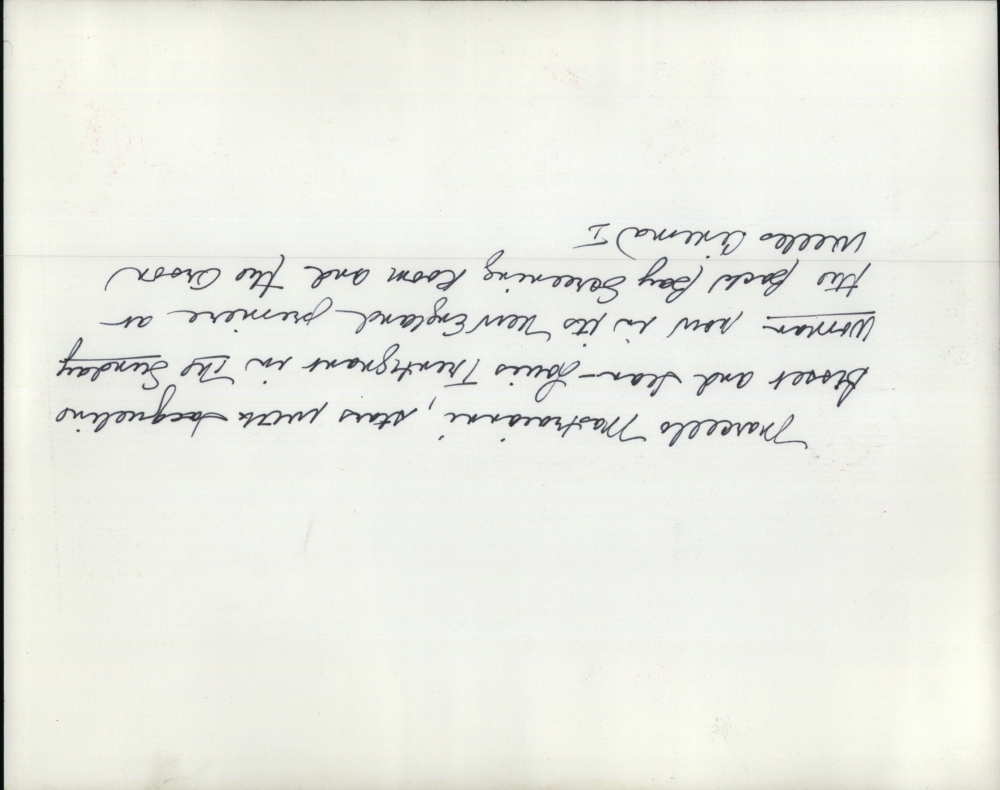 Marcello Mastroianni, stars with Jacqueline
Bisset and Jean-Louis Trintignant in The Sunday
Woman now in its New England premiere at
the Back Bay Screening Room and the Orson
Welles Cinema I